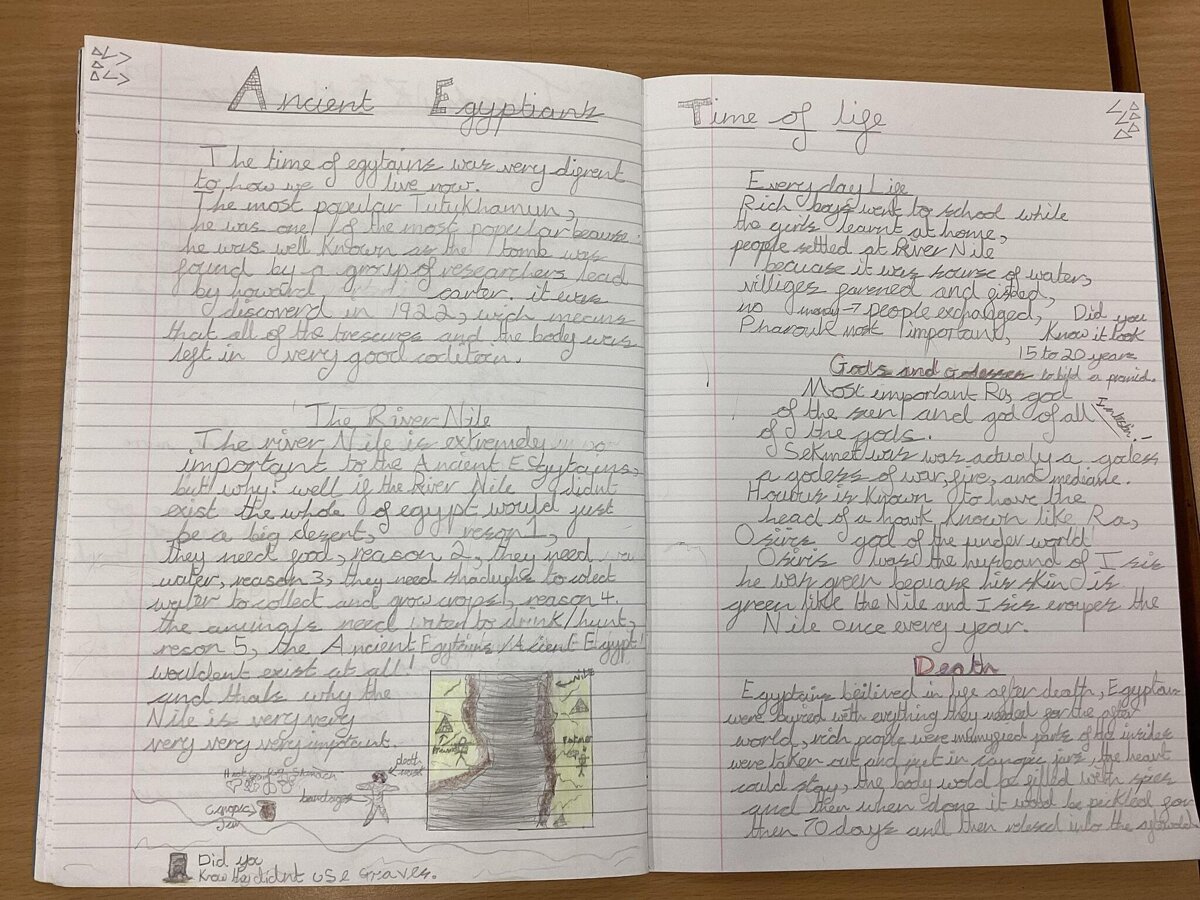 Ancient Egyptians
The time of egytains was very digrent
to how we live now.
The most popular Tutukhamun,
he was one of the most popular because
he was well known as the tomb was
found by a group of researchers lead
by howard carter. it was
discoverd in 1922, wich means
that all of the trescures and the body was
left in very good coditoon.
The River Nile
The river Nile is extremely
important to the Ancient Esgytains,
but why? well if the River Nile didnt
exist the whole of egypt would just
be a big desert, reson 1,
they need food, reason 2, they need
water, reason 3, they need shadughs to colect
water to collect and grow crops, reason 4.
the animals need water to drink/hunt,
reson 5, the Ancient Egytains/Acient Egypt!
wouldent exist at all!
and thats why the
Nile is very very
very very very important.
Stomach
Canopic
Jar
death mask
bandages
Nile
Farmer
Did you
Know they didnt use Graves.
Time of life
Every day Life
Rich boys went to school while
the girls learnt at home,
people settled at River Nile
because it was sourse of water,
villiges farmed and fished,
no mony → people exchanged,
Pharouh most important,
Did you
Know it took
15 to 20 years
to bild a piramid.
Gods and Godesses
Most important Ra, god
of the sun and god of all
of the gods.
Sekmet was was actualy a godess
a godess of war, fire, and mediane.
Hourus is known to have the
head of a hawk known like Ra,
Osiris god of the under world
Osiris was the husband of Isis
he was green because his skin is
green like the Nile and Isis
Nile once every year.
Death
Egyptains beilived in life after death, Egyptains
were buried with evything they needed for the after
world, rich people were mumyfied parts of the insides
were taken out and put in canopic jars, the heart
could stay, the body wold be filled with spies
and then when done it wold be peckled for
then 70 days and then relesed into the